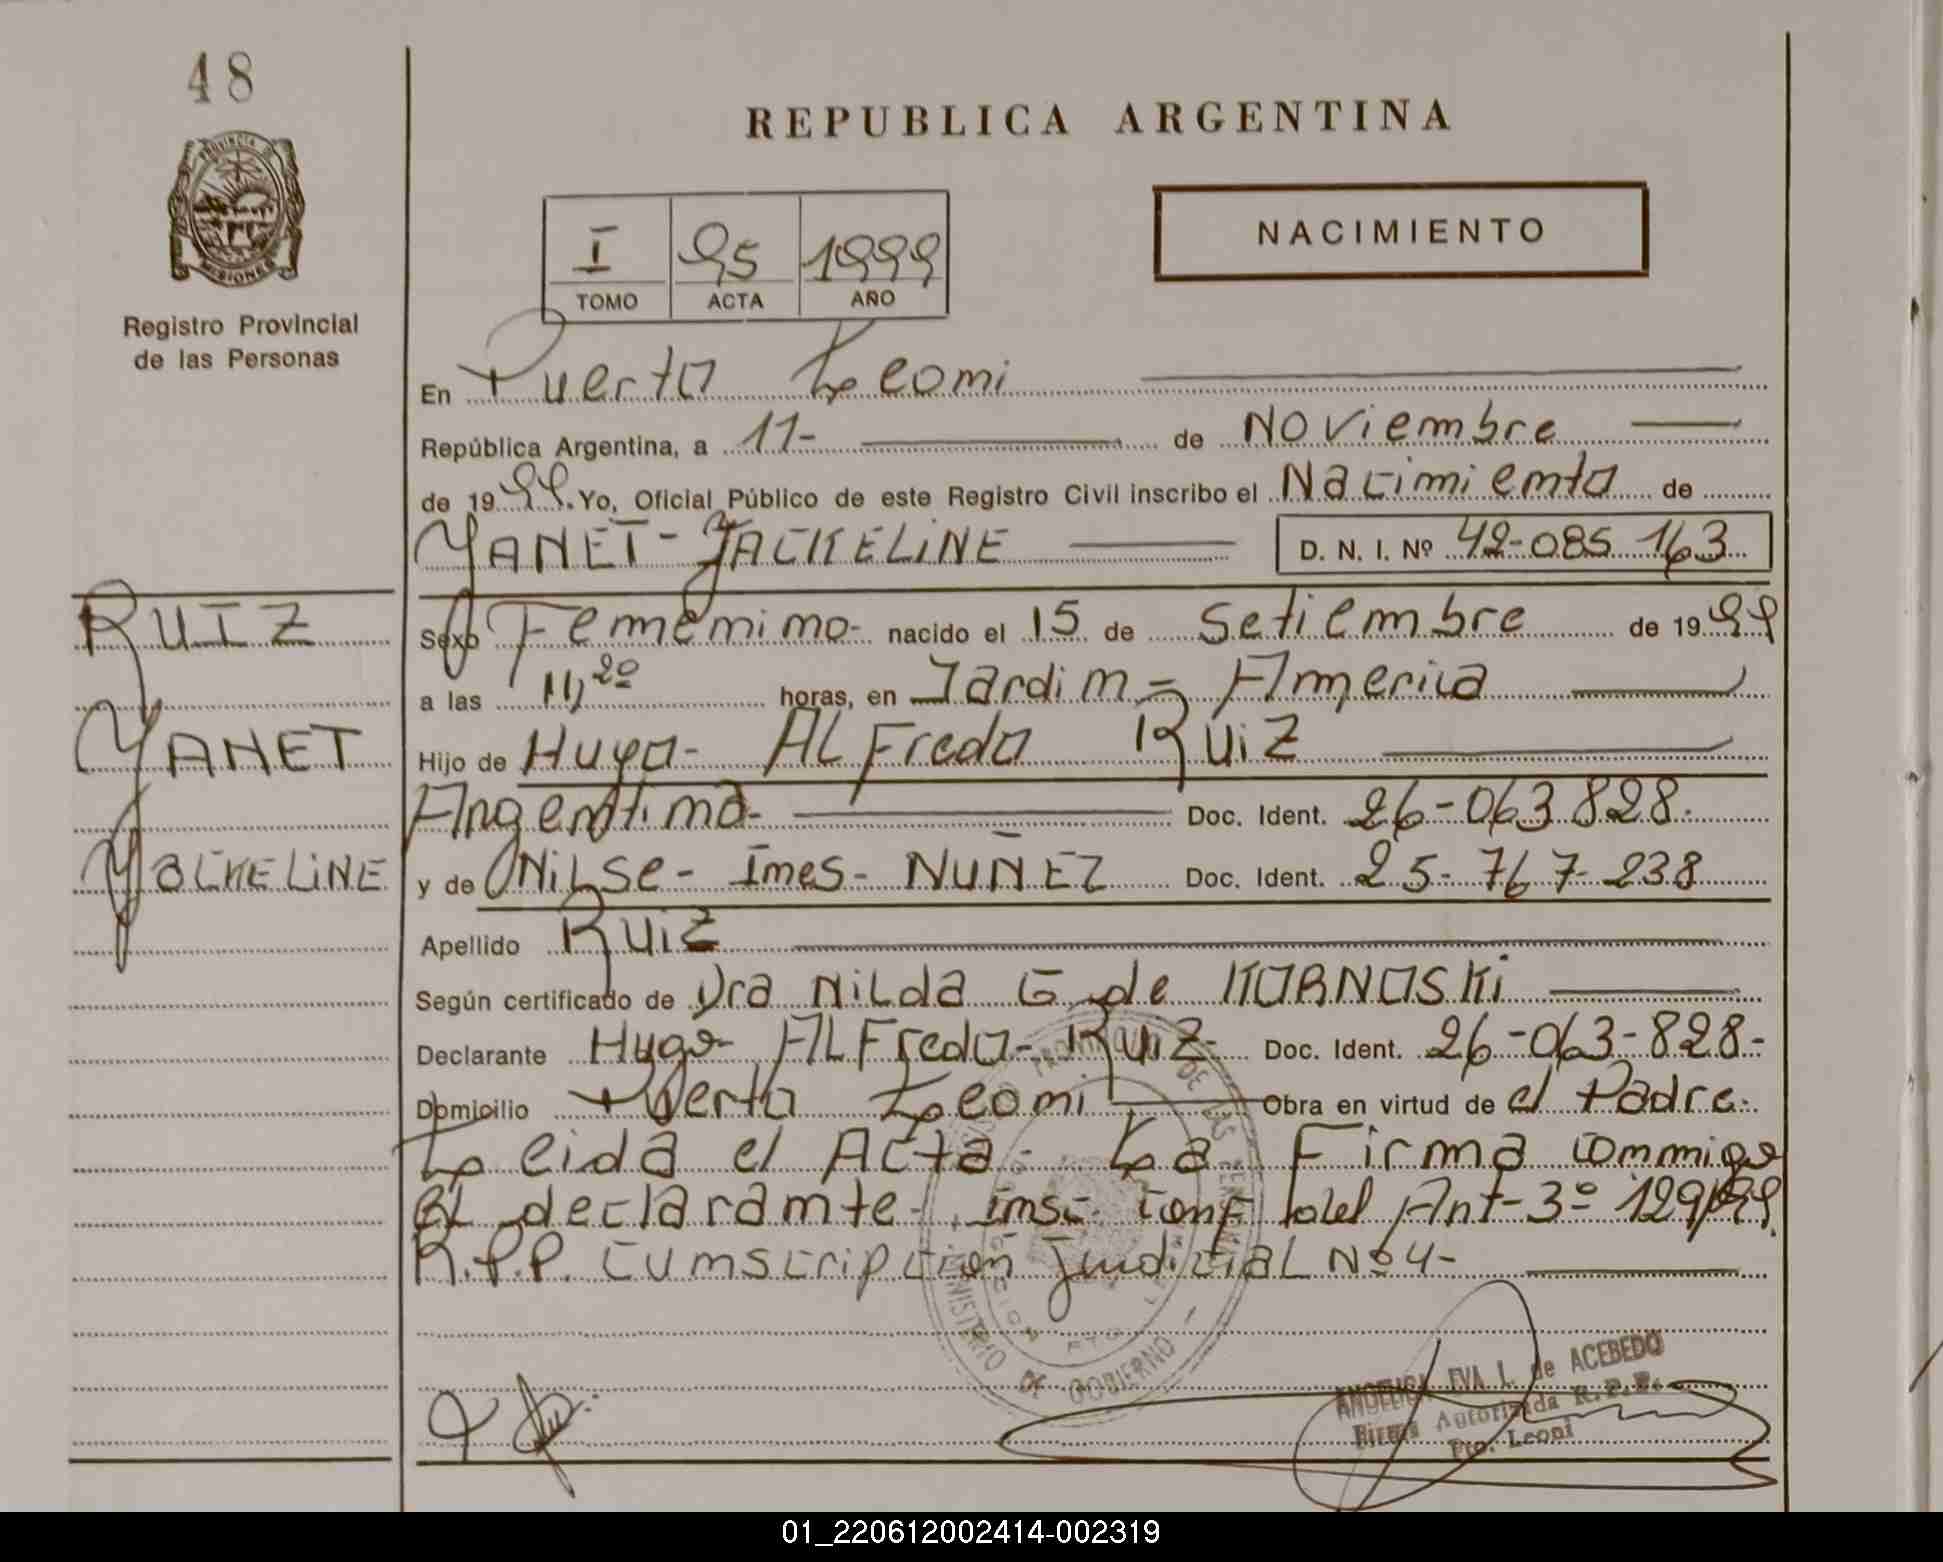 48
REPUBLICA ARGENTINA
PROVINCIA DE
MISIONES
Registro Provincial
de las Personas
NACIMIENTO
I 95 1999
TOMO ACTA AÑO
En Puerto Leoni
República Argentina, a 11- de Noviembre
de 1999. Yo, Oficial Público de este Registro Civil inscribo el Nacimiento de
YANET - JACKELINE D. N. I. Nº 42-085 163
RUIZ
YANET
YACKELINE
Sexo Femenino- nacido el 15 de Setiembre de 1999
a las 11,20 horas, en Jardin - America
Hijo de Hugo- ALFredo RUIZ
Argentino- Doc. Ident. 26-063 828.
y de NiLSe- Ines- NUÑEZ Doc. Ident. 25-767-238
Apellido RUIZ
Según certificado de Dra NiLda G de KORNOSKi
Declarante Hugo- ALFredo- Ruiz- Doc. Ident. 26-063-828-
Domicilio Puerto Leoni Obra en virtud de el Padre.
Leida el Acta- La Firma conmigo
EL declarante- insc. conf del Ant-3º 129/99.
R.P.P. Cunscripcion JudiciaL Nº 4-
MINISTERIO DE GOBIERNO
ANGELICA EVA L. de ACEBEDO
Firma Autorizada R.P.P.
Pto. Leoni
01_220612002414-002319